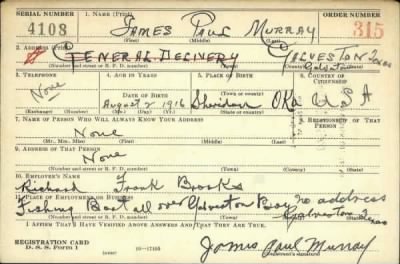 SERIAL NUMBER 1. NAME (Print) ORDER NUMBER
4108 JAMES PAUL MURRAY 315
(First) (Middle) (Last)
2. ADDRESS (Print)
GENERAL DELIVERY GALVESTON Texas
Galveston
(Number and street or R. F. D. number) (Town) (County) (State)
3. TELEPHONE 4. AGE IN YEARS 5. PLACE OF BIRTH 6. COUNTRY OF CITIZENSHIP
None
DATE OF BIRTH (Town or county)
August 2 1916 Sheridan Oka U S A
(Exchange) (Number) (Mo.) (Day) (Yr.) (State or country)
7. NAME OF PERSON WHO WILL ALWAYS KNOW YOUR ADDRESS 8. RELATIONSHIP OF THAT PERSON
None
(Mr., Mrs., Miss) (First) (Middle) (Last)
9. ADDRESS OF THAT PERSON
None
(Number and street or R. F. D. number) (Town) (County) (State)
10. EMPLOYER'S NAME
Richard Frank Brooks
11. PLACE OF EMPLOYMENT OR BUSINESS
Fishing Boat all over Galveston Bay no address
Galveston Texas
(Number and street or R. F. D. number) (Town) (County) (State)
I AFFIRM THAT I HAVE VERIFIED ABOVE ANSWERS AND THAT THEY ARE TRUE.
REGISTRATION CARD
D. S. S. Form 1 16-17105
(over) James Paul Murray
(Registrant's signature)